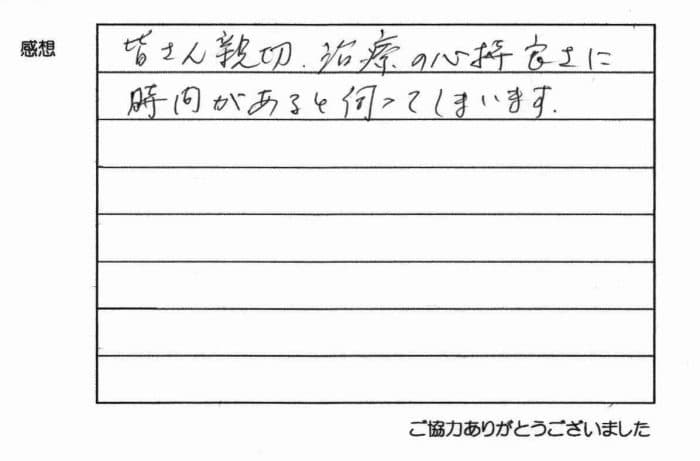 感想
皆さん親切、治療の心持良さに
時間があると伺ってしまいます.
ご協力ありがとうございました